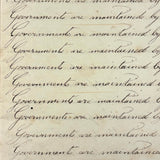 Governments are maintained by
Governments are maintained by
Governments are maintained by
Governments are maintained by
Governments are maintained
Governments are maintained
Governments are maintained
Governments are maintained
Governments are maintained